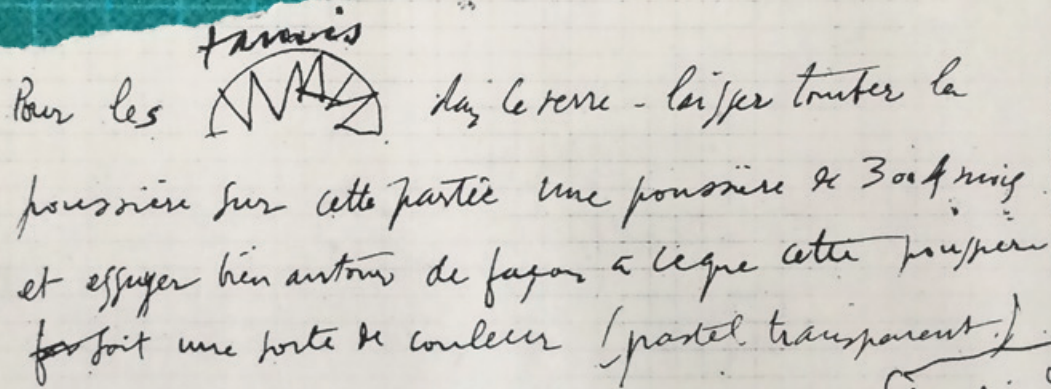 tamis
Pour les dans le verre - laisser tomber la
poussière sur cette partie une poussière de 3 ou 4 mois
et essuyer bien autour de façon à ce que cette poussière
soit une sorte de couleur (pastel transparent)